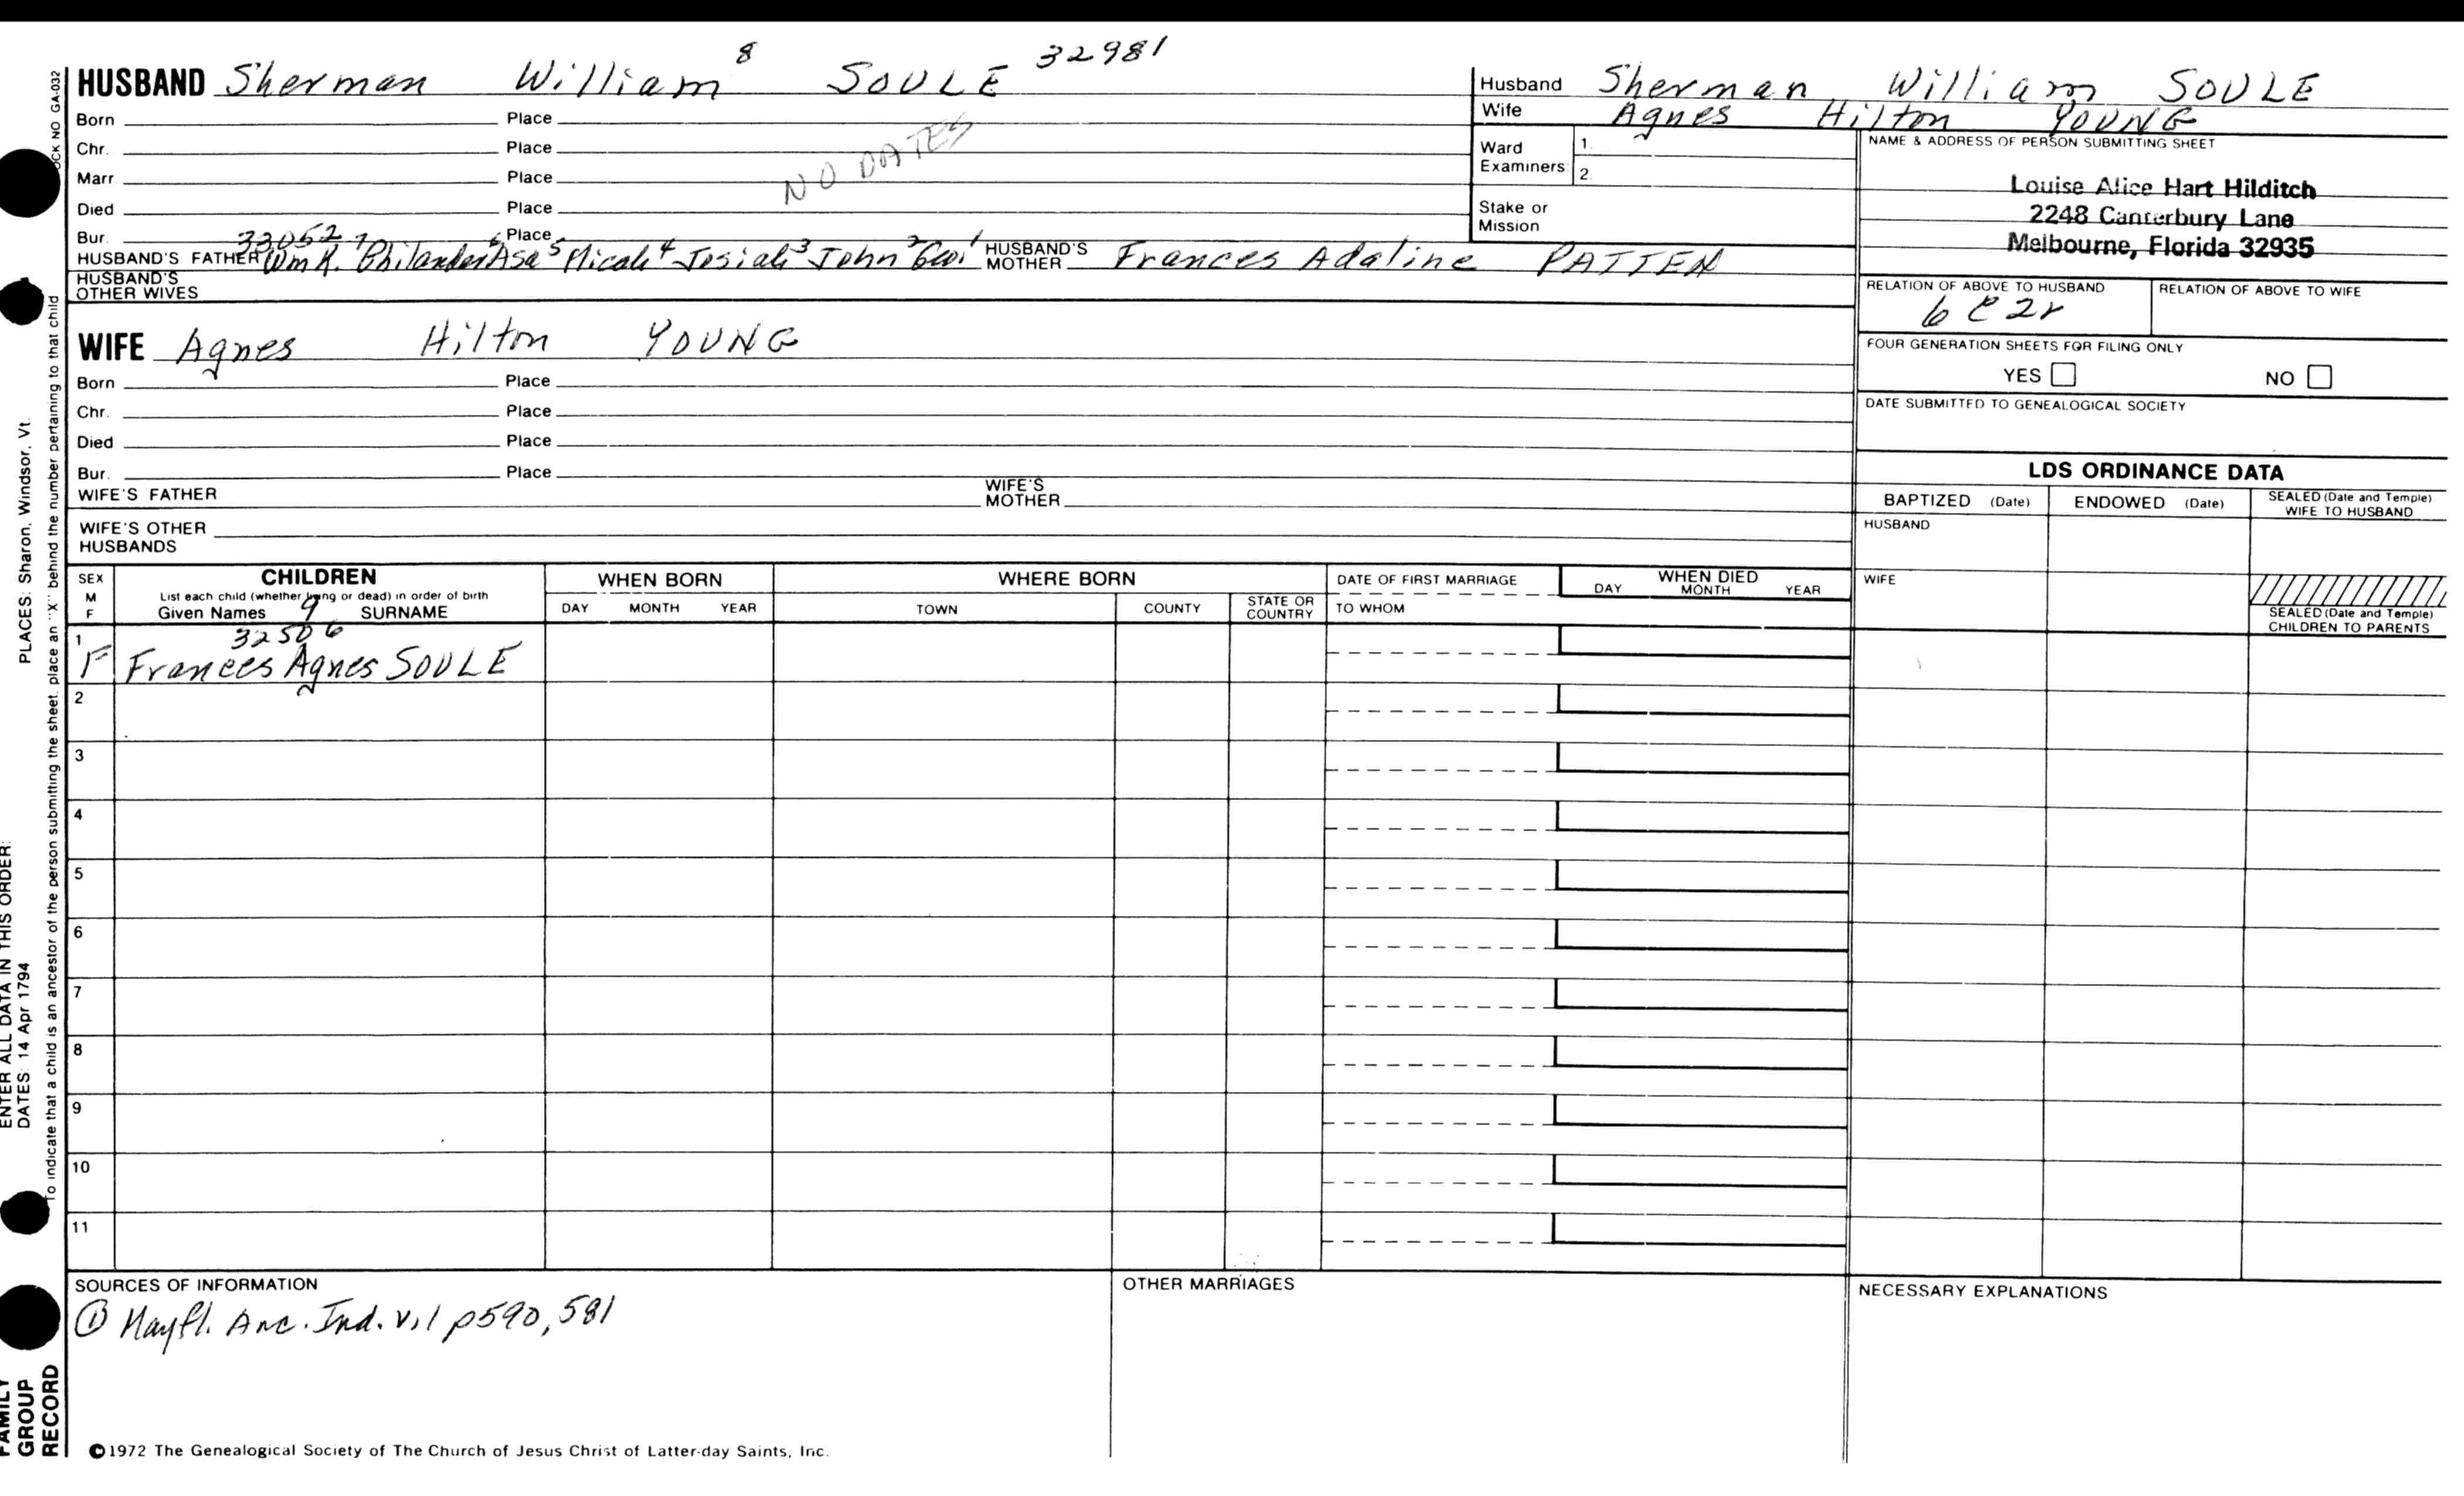 HUSBAND Sherman William 8 SOULE 32981
Born Place
Chr. Place
Marr Place
NO DATES
Died Place
Bur. Place
33052
HUSBAND'S FATHER Wm H. 7 Philander 6 Asa 5 Micah 4 Josiah 3 John 2 Geo. 1 HUSBAND'S MOTHER Frances Adaline PATTEN
HUSBAND'S OTHER WIVES
WIFE Agnes Hilton YOUNG
Born Place
Chr. Place
Died Place
Bur. Place
WIFE'S FATHER WIFE'S MOTHER
WIFE'S OTHER HUSBANDS
Husband Sherman William SOULE
Wife Agnes Hilton YOUNG
Ward Examiners 1. 2.
Stake or Mission
NAME & ADDRESS OF PERSON SUBMITTING SHEET
Louise Alice Hart Hilditch
2248 Canterbury Lane
Melbourne, Florida 32935
RELATION OF ABOVE TO HUSBAND RELATION OF ABOVE TO WIFE
6 C 2r
FOUR GENERATION SHEETS FOR FILING ONLY
YES NO
DATE SUBMITTED TO GENEALOGICAL SOCIETY
LDS ORDINANCE DATA
BAPTIZED (Date) ENDOWED (Date) SEALED (Date and Temple) WIFE TO HUSBAND
HUSBAND
WIFE
SEALED (Date and Temple) CHILDREN TO PARENTS
SEX M F
CHILDREN
List each child (whether living or dead) in order of birth
Given Names 9 SURNAME
WHEN BORN
DAY MONTH YEAR
WHERE BORN
TOWN COUNTY STATE OR COUNTRY
DATE OF FIRST MARRIAGE
TO WHOM
WHEN DIED
DAY MONTH YEAR
32506
1 F Frances Agnes SOULE
2
3
4
5
6
7
8
9
10
11
SOURCES OF INFORMATION
① Mayfl. Anc. Ind. v.1 p590, 581
OTHER MARRIAGES
NECESSARY EXPLANATIONS
©1972 The Genealogical Society of The Church of Jesus Christ of Latter-day Saints, Inc.
OCK NO GA-032
To indicate that a child is an ancestor of the person submitting the sheet, place an "X" behind the number pertaining to that child
PLACES: Sharon, Windsor, Vt.
ENTER ALL DATA IN THIS ORDER:
DATES: 14 Apr 1794
FAMILY
GROUP
RECORD